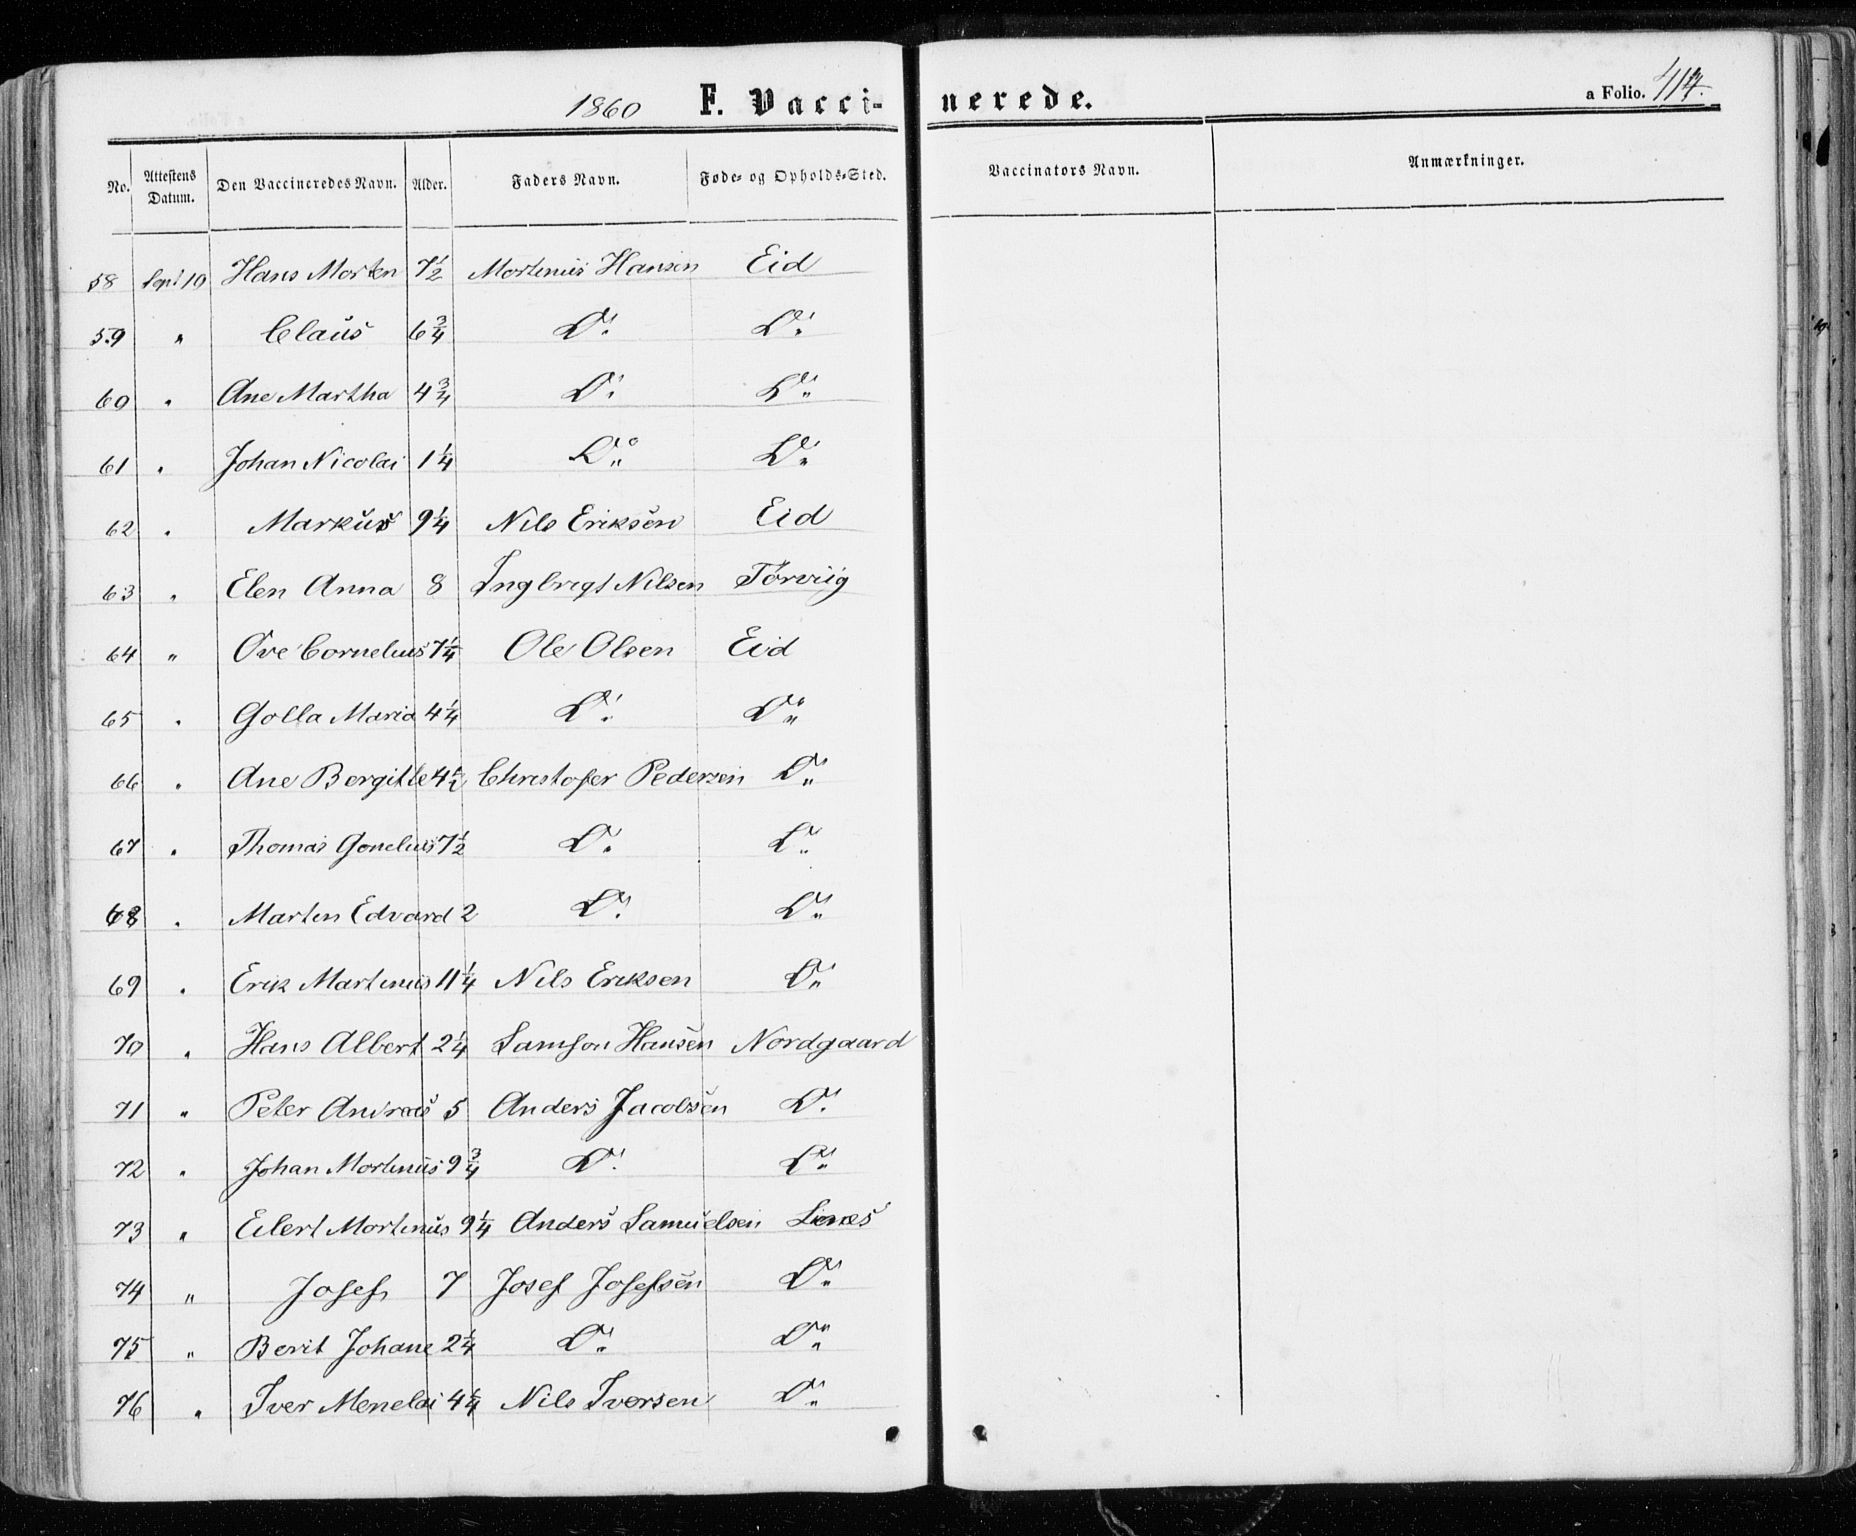 1860 F. Vacci- nerede. a Folio. 414.
No. Attestens Datum. Den Vaccineredes Navn. Alder. Faders Navn. Føde- og Opholds-Sted. Vaccinators Navn. Anmærkninger.
58 Sept 10 Hans Morten 7 1/2 Mortinus Hansen Eid
59 " Claus 6 3/4 Do. Do.
60 " Ane Martha 4 3/4 Do. Do.
61 " Johan Nicolai 1 1/4 Do. Do.
62 " Markus 9 1/4 Nils Eriksen Eid
63 " Elen Anna 8 Ingbrigt Nilsen Tørviig
64 " Ove Cornelius 7 1/4 Ole Olsen Eid
65 " Golla Maria 4 1/4 Do. Do.
66 " Ane Bergitte 4 1/2 Christofer Pedersen Do.
67 " Thomas Gonelius 7 1/2 Do. Do.
68 " Marten Edvard 2 Do. Do.
69 " Erik Martinus 11 1/4 Nils Eriksen Do.
70 " Hans Albert 2 1/4 Samson Hansen Nordgaard
71 " Peter Andreas 5 Anders Jacobsen Do.
72 " Johan Mortinus 9 3/4 Do. Do.
73 " Eilert Mortinus 9 1/4 Anders Samuelsen
74 " Josef 7 Josef Josefsen Do.
75 " Berit Johane 2 1/4 Do. Do.
76 " Iver Menelai 4 1/4 Nils Iversen Do.